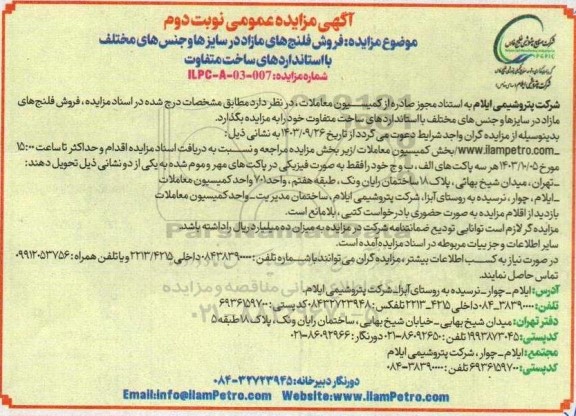 آگهی مزایده عمومی نوبت دوم
موضوع مزایده: فروش فلنج‌های مازاد در سایزها و جنس‌های مختلف
با استانداردهای ساخت متفاوت
شماره مزایده: ILPC-A-03-007
شرکت پتروشیمی ایلام به استناد مجوز صادره از کمیسیون معاملات، در نظر دارد مطابق مشخصات درج شده در اسناد مزایده، فروش فلنج‌های
مازاد در سایزها و جنس های مختلف با استانداردهای ساخت متفاوت خود را به مزایده بگذارد.
بدینوسیله از مزایده گران واجد شرایط دعوت می گردد از تاریخ ۱۴۰۳/۰۹/۲۶ به نشانی ذیل:
www.ilampetro.com/بخش کمیسیون معاملات/زیر بخش مزایده مراجعه و نسبت به دریافت اسناد مزایده اقدام و حداکثر تا ساعت ۱۵:۰۰
مورخ ۱۴۰۳/۱۰/۰۵ هر سه پاکت های الف، ب و ج خود را فقط به صورت فیزیکی در پاکت های مهر و موم شده به یکی از دو نشانی ذیل تحویل دهند:
-تهران، میدان شیخ بهائی، پلاک ۱۸ ساختمان رایان ونک، طبقه هفتم، واحد ۷۰۱ واحد کمیسیون معاملات
-ایلام، چوار، نرسیده به روستای آبزا، شرکت پتروشیمی ایلام، ساختمان مدیریت-واحد کمیسیون معاملات
بازدید از اقلام مزایده به صورت حضوری با درخواست کتبی، بلامانع است.
مزایده گر لازم است توانایی تودیع ضمانتنامه شرکت در مزایده به میزان ده میلیارد ریال را داشته باشد.
سایر اطلاعات و جزییات مربوطه در اسناد مزایده آمده است.
در صورت نیاز به کسب اطلاعات بیشتر، مزایده گران می توانند با شماره تلفن: ۰۸۴۳۸۳۹۰۰۰۰ داخلی ۲۲۱۳/۴۲۱۵ و یا تلفن همراه: ۰۹۹۱۲۰۵۳۷۵۶
تماس حاصل نمایند.
آدرس: ایلام-چوار-نرسیده به روستای آبزا-شرکت پتروشیمی ایلام
تلفن: ۳۸۳۹۰۰۰۰-۰۸۴ داخلی ۲۲۱۵-۴۲۱۳ تلفکس: ۰۸۴۳۲۷۲۳۹۴۸ کد پستی: ۶۹۳۶۱۵۹۷۰۰
دفتر تهران: میدان شیخ بهایی-خیابان شیخ بهایی، ساختمان رایان ونک، پلاک ۱۸ طبقه ۵
کد پستی: ۱۹۹۳۸۷۳۰۴۵ تلفن: ۸۶۰۹۲۶۵۰-۰۲۱ دورنگار: ۸۶۰۹۲۹۶۶-۰۲۱
مجتمع: ایلام-چوار، شرکت پتروشیمی ایلام
کد پستی: ۶۹۳۶۱۵۹۷۰۰ تلفن: ۳۸۳۹۰۰۰۰-۰۸۴
دورنگار دبیرخانه: ۳۲۷۲۳۹۴۵-۰۸۴
Email:info@ilamPetro.com Website:www.ilamPetro.com